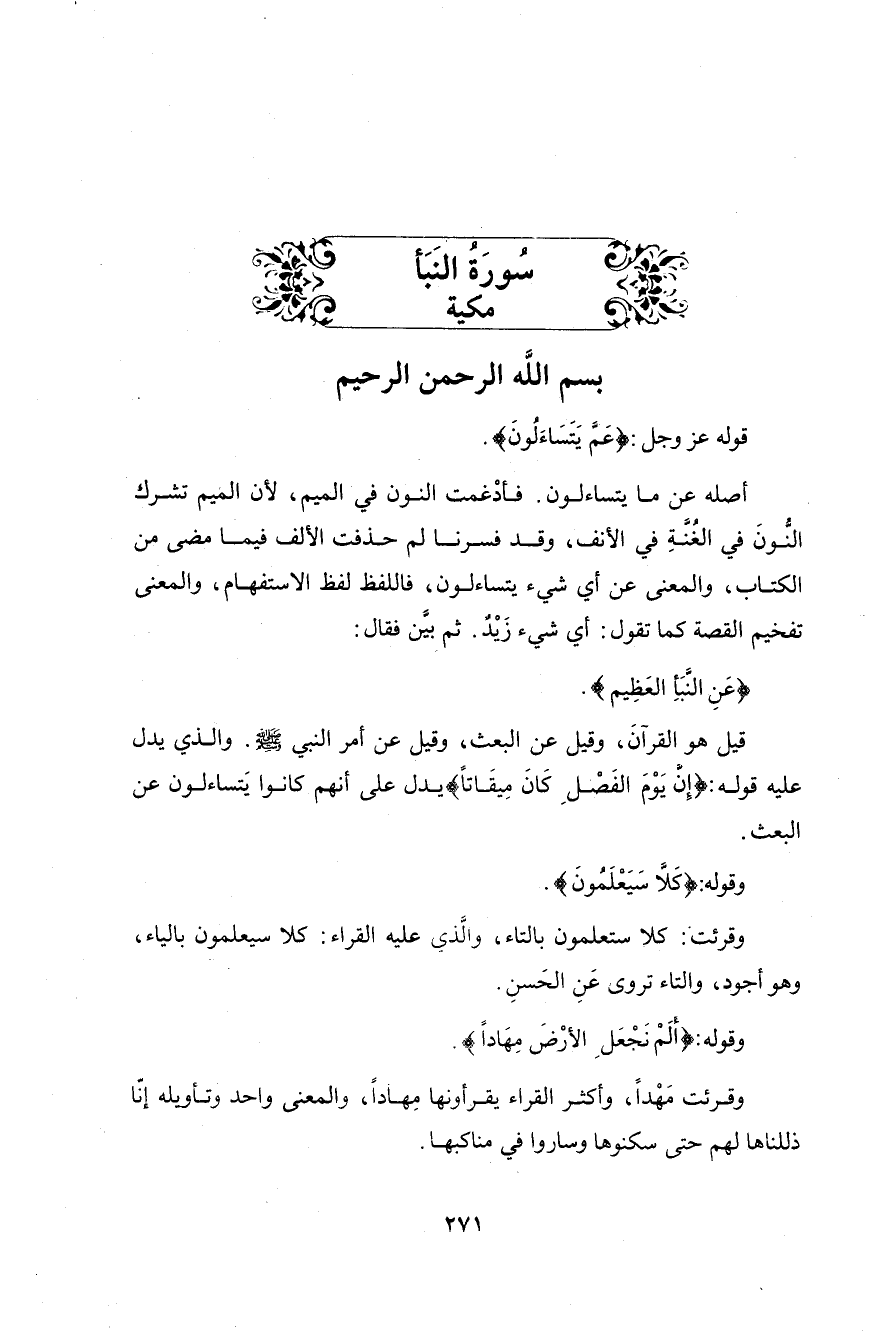 سُورَةُ النَبَأ
مكية
بسم اللَّه الرحمن الرحيم
قوله عز وجل: ﴿عَمَّ يَتَسَاءَلُونَ﴾.
أصله عن ما يتساءلون. فأدْغمت النون في الميم، لأن الميم تشرك
النُّونَ في الغُنَّةِ في الأنف، وقد فسرنا لم حذفت الألف فيما مضى من
الكتاب، والمعنى عن أي شيء يتساءلون، فاللفظ لفظ الاستفهام، والمعنى
تفخيم القصة كما تقول: أي شيء زَيْدٌ. ثم بيَّن فقال:
﴿عَنِ النَّبَأِ العَظِيم﴾.
قيل هو القرآنَ، وقيل عن البعث، وقيل عن أمر النبي ﷺ. والذي يدل
عليه قوله: ﴿إِنَّ يَوْمَ الفَصْلِ كَانَ مِيقَاتاً﴾ يدل على أنهم كانوا يَتساءلون عن
البعث.
وقوله: ﴿كَلَّا سَيَعْلَمُونَ﴾.
وقرئت: كلا ستعلمون بالتاء، والَّذي عليه القراء: كلا سيعلمون بالياء،
وهو أجود، والتاء تروى عَنِ الحَسنِ.
وقوله: ﴿أَلَمْ نَجْعَلِ الأرْضَ مِهَاداً﴾.
وقرئت مَهْداً، وأكثر القراء يقرأونها مِهاداً، والمعنى واحد وتأويله إنّا
ذللناها لهم حتى سكنوها وساروا في مناكبها.
٢٧١